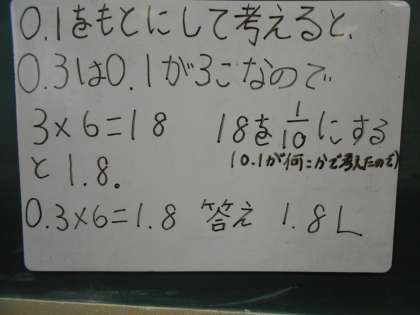 0.1をもとにして考えると、
0.3は0.1が3こなので
3×6=18 18を1/10にする
(0.1が何こかで考えたので)
と 1.8。
0.3×6=1.8 答え 1.8L